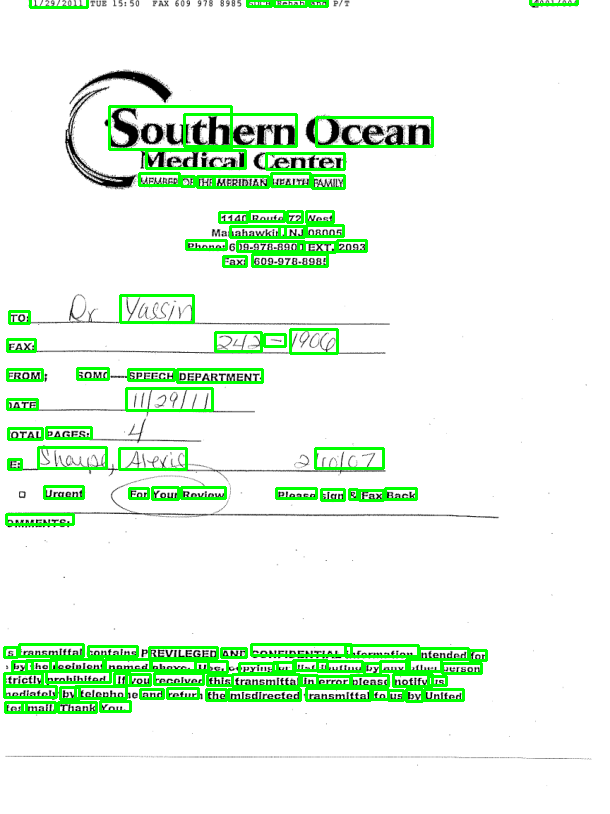 1/29/2011 TUE 15:50 FAX 609 978 8985 SOCH Rehab and P/T
Southern Ocean
Medical Center
MEMBER OF THE MERIDIAN HEALTH FAMILY
1140 Route 72 West
Manahawkin, NJ 08005
Phone: 609-978-8900 EXT. 2093
Fax: 609-978-8985
TO: Dr Yassin
FAX: 242-1906
FROM: SOMC—SPEECH DEPARTMENT
DATE 11/29/11
OTAL PAGES: 4
E: Sharpe, Alexis 2/10/07
Urgent For Your Review Please sign & Fax Back
OMMENTS:
s transmittal contains PREVILEGED AND CONFIDENTIAL information intended for
by the recipient named above. Use, copying or distributing by any other person
strictly prohibited. If you received this transmittal in error please notify us
mediately by telephone and return the misdirected transmittal to us by United
tes mail. Thank You.